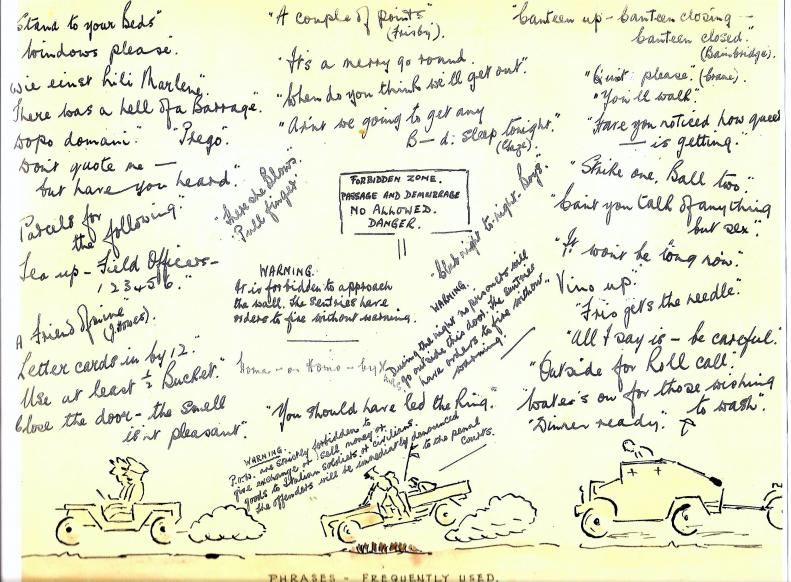 Stand to your Beds"
Windows please".
Wie einst Lili Marlene".
There was a hell of a Barrage."
Dopo domain." "Prego".
Don't quote me —
but have you heard."
Parcels for
the following"
Tea up - Field Officers -
1 2 3 4 5 6."
A friend of mine
(J. Howes).
Letter cards in by 12."
Use at least ½ Bucket."
Close the door - the smell
isn't pleasant".
"A couple of points"
(Frisby).
"It's a merry go round.
"When do you think we'll get out".
"Ain't we going to get any
B—d: Sleep tonight."
"There she Blows.
"Pull finger"
FORBIDDEN ZONE.
PASSAGE AND DEMURRAGE
NO ALLOWED.
DANGER.
"Club night to-night - Boys".
WARNING.
It is forbidden to approach
the wall. The sentries have
orders to fire without warning.
WARNING.
During the night no prisoners will
go outside this door. The sentries
have orders to fire without
warning.
Homa - or Homo - by
"You should have led the King."
WARNING.
P.O.W. are strictly forbidden to
give exchange or sell money or
goods to Italian soldiers or civilians.
The offenders will be immediately denounced
to the penal
Courts.
"Canteen up - Canteen closing --
Canteen closed".
(Bainbridge).
"Quiet please". (Crane).
"You'll walk"
"Have you noticed how queer
— is getting."
"Strike one, Ball two."
"Can't you talk of anything
but sex".
"It wont be long now".
Vino up".
"Frio gets the needle".
"All I say is - be careful."
"Outside for Roll call".
Water's on for those wishing
to wash".
"Dinner ready".
PHRASES - FREQUENTLY USED.